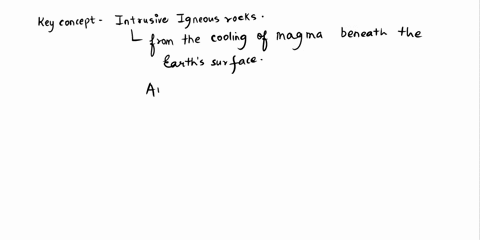 Key concept - Intrusive Igneous rocks.
from the cooling of magma beneath the
Earth's surface.